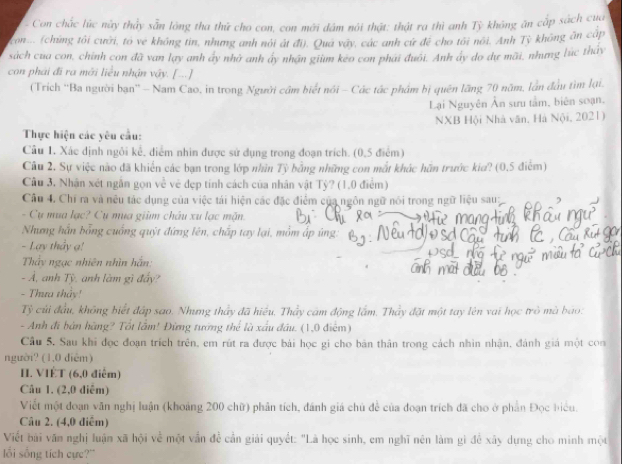 - Con chắc lúc này thầy sẵn lòng tha thứ cho con, con mới dám nói thật: thật ra thì anh Tỷ không ăn cắp sách của
con... (chúng tôi cười, tỏ vẻ không tin, nhưng anh nói át đi). Quả vậy, các anh cứ để cho tôi nói. Anh Tỷ không ăn cắp
sách của con, chính con đã van lạy anh ấy nhờ anh ấy nhận giùm kẻo con phải đuổi. Anh ấy do dự mãi, nhưng lúc thấy
con phải đi ra mới liều nhận vậy. [...]
(Trích "Ba người bạn" – Nam Cao, in trong Người câm biết nói - Các tác phẩm bị quên lãng 70 năm, lần đầu tìm lại.
Lại Nguyên Ân sưu tầm, biên soạn,
NXB Hội Nhà văn, Hà Nội, 2021)
Thực hiện các yêu cầu:
Câu 1. Xác định ngôi kể, điểm nhìn được sử dụng trong đoạn trích. (0,5 điểm)
Câu 2. Sự việc nào đã khiến các bạn trong lớp nhìn Tỷ bằng những con mắt khác hẳn trước kia? (0,5 điểm)
Câu 3. Nhận xét ngắn gọn về vẻ đẹp tính cách của nhân vật Tỷ? (1,0 điểm)
Câu 4. Chỉ ra và nêu tác dụng của việc tái hiện các đặc điểm của ngôn ngữ nói trong ngữ liệu sau:
- Cụ mua lạc? Cụ mua giùm cháu xu lạc mận.
Nhưng hắn bỗng cuống quýt đứng lên, chắp tay lại, mồm ấp úng:
- Lạy thầy ạ!
Thầy ngạc nhiên nhìn hắn:
- À, anh Tỷ, anh làm gì đấy?
- Thưa thầy!
B1: Chỉ ra: từ mang tính khẩu ngữ
B2: Nêu td sd câu tỉnh lc, câu rút gọn
sd từ ngữ miêu tả cử chỉ
ánh mắt điệu bộ.
Tỷ cúi đầu, không biết đáp sao. Nhưng thầy đã hiểu. Thầy cảm động lắm. Thầy đặt một tay lên vai học trò mà bảo:
- Anh đi bán hàng? Tốt lắm! Đừng tưởng thế là xấu đâu. (1,0 điểm)
Câu 5. Sau khi đọc đoạn trích trên, em rút ra được bài học gì cho bản thân trong cách nhìn nhận, đánh giá một con
người? (1,0 điểm)
II. VIẾT (6,0 điểm)
Câu 1. (2,0 điểm)
Viết một đoạn văn nghị luận (khoảng 200 chữ) phân tích, đánh giá chủ đề của đoạn trích đã cho ở phần Đọc hiểu.
Câu 2. (4,0 điểm)
Viết bài văn nghị luận xã hội về một vấn đề cần giải quyết: "Là học sinh, em nghĩ nên làm gì để xây dựng cho mình một
lối sống tích cực?"